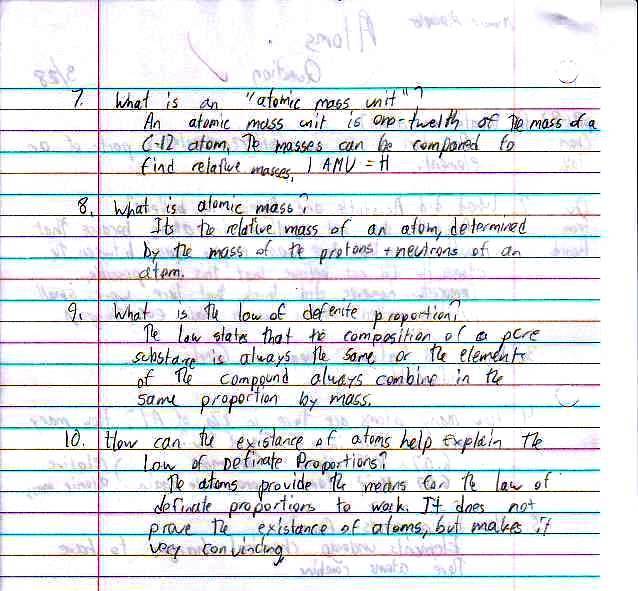 7. What is an "atomic mass unit"?
An atomic mass unit is one-twelth of the mass of a
C-12 atom, The masses can be compared to
find relative masses, 1 AMU = H
8. What is atomic mass?
Its the relative mass of an atom, determined
by the mass of the protons + neutrons of an
atom.
9. What is the law of defenite proportion?
The law states that the composition of a pure
substance is always the same or the elements
of the compound always combine in the
same proportion by mass.
10. How can the existance of atoms help explain the
Law of Definate Proportions?
The atoms provide the means for the law of
definate proportions to work. It does not
prove the existance of atoms, but makes it
very convincing